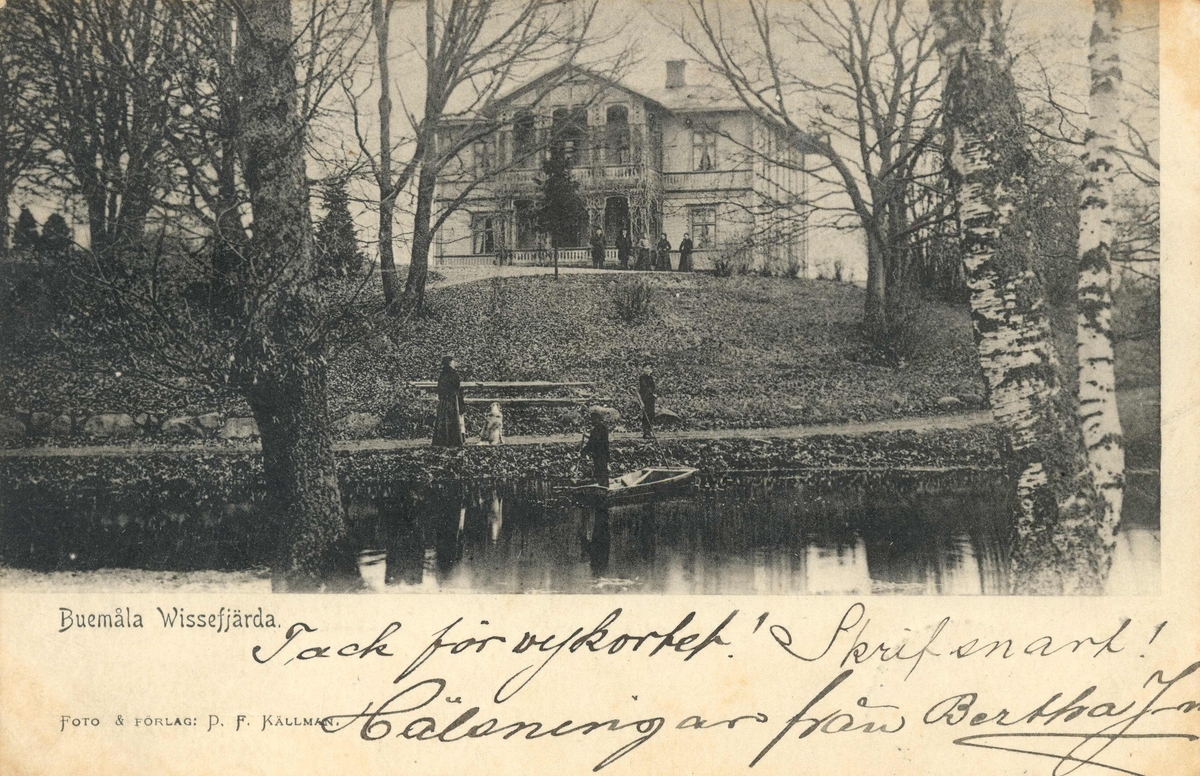 Buemåla Wissefjärda.
Tack för vykortet! Skrif snart!
FOTO & FÖRLAG: P. F. KÄLLMAN.
Hälsningar från Bertha J-n